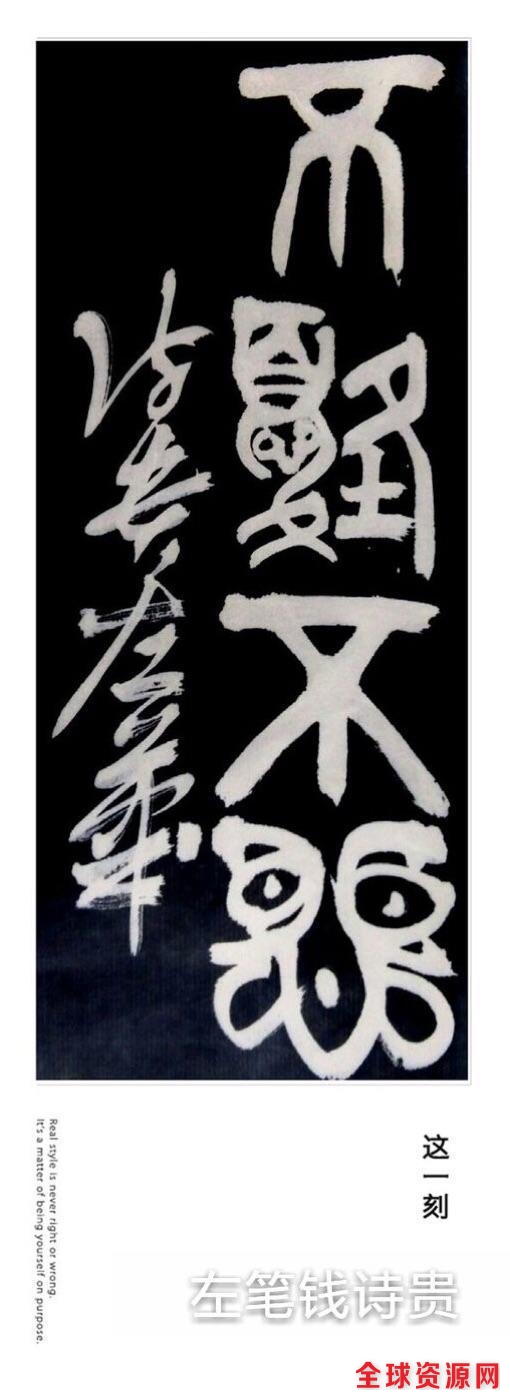 不 不愳
诗贵左笔
这一刻
Real style is never right or wrong.
It's a matter of being yourself on purpose.
左笔钱诗贵
全球资源网